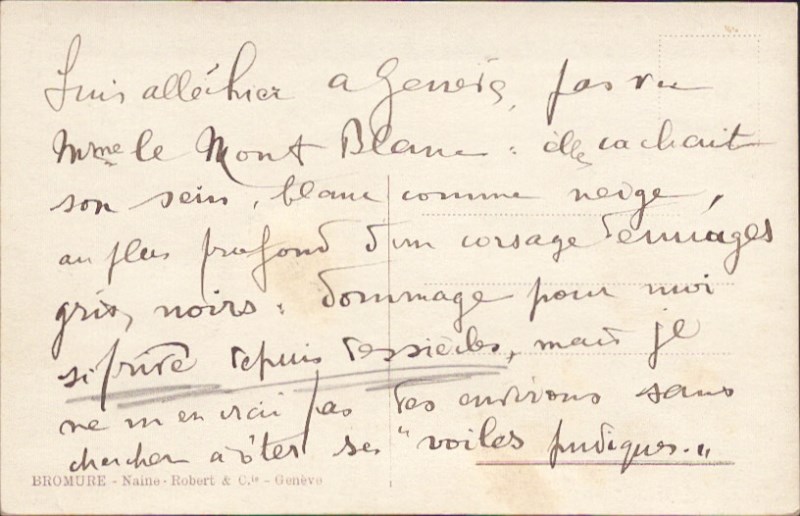 Suis allé hier a Genève, pas vu
Mme le Mont Blanc : elle cachait
son sein, blanc comme neige,
au plus profond d'un corsage de nuages
gris, noirs : dommage pour moi
si privé depuis des siècles, mais je
ne m'en irai pas des environs sans
chercher a ôter ses "voiles pudiques."
BROMURE - Naine-Robert & C.ie - Genève